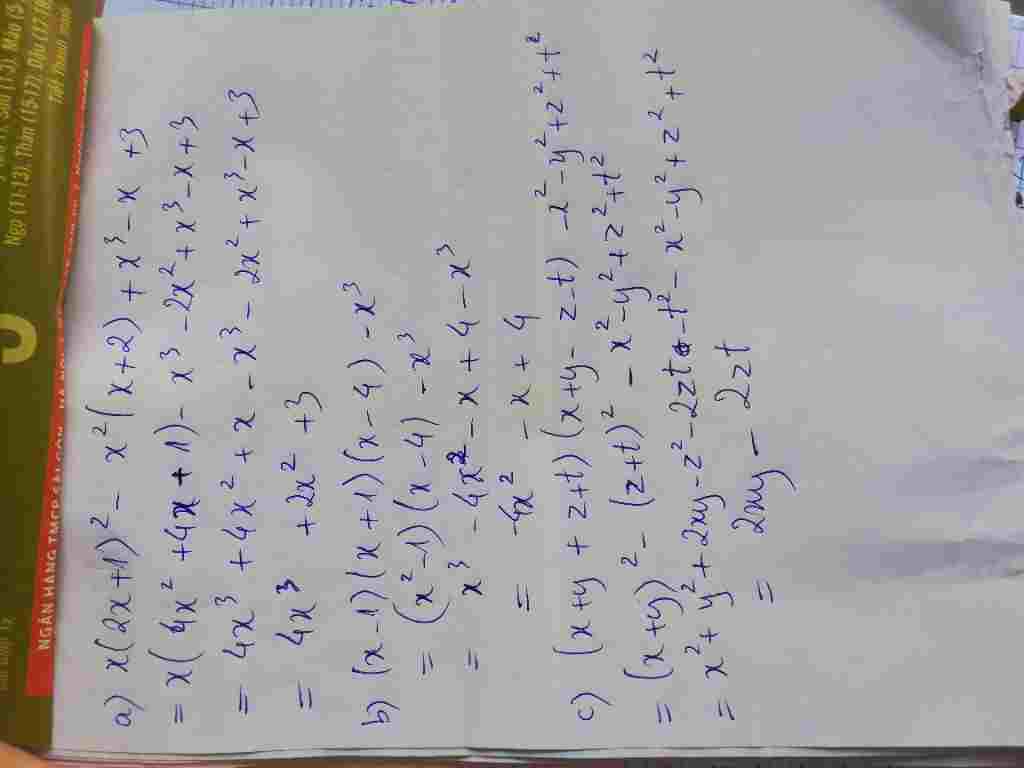 Ngọ (11-13), Thân (15-17), Dậu (17-19)
NGÂN HÀNG TMCP SÀI GÒN - HÀ NỘI
a) x(2x+1)² - x²(x+2) + x³ - x + 3
= x(4x² + 4x + 1) - x³ - 2x² + x³ - x + 3
= 4x³ + 4x² + x - x³ - 2x² + x³ - x + 3
= 4x³ + 2x² + 3
b) (x-1)(x+1)(x-4) - x³
= (x²-1)(x-4) - x³
= x³ - 4x² - x + 4 - x³
= -4x² - x + 4
c) (x+y+z+t)(x+y-z-t) - x² - y² + z² + t²
= (x+y)² - (z+t)² - x² - y² + z² + t²
= x² + y² + 2xy - z² - 2zt - t² - x² - y² + z² + t²
= 2xy - 2zt